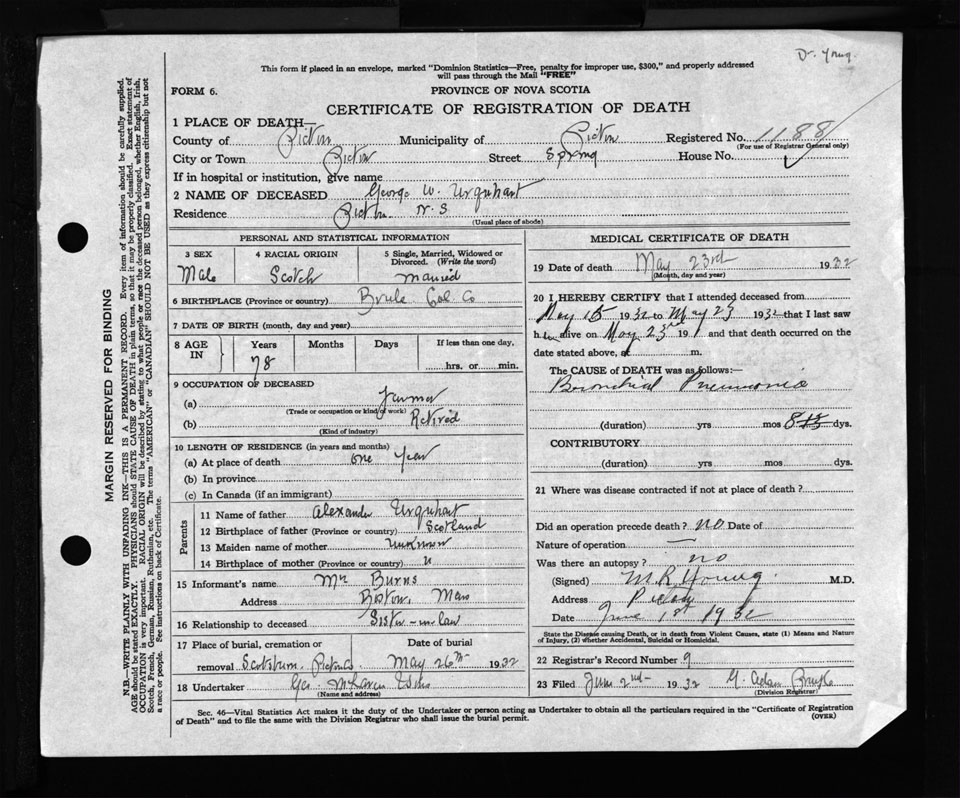 Dr. Young
This form if placed in an envelope, marked "Dominion Statistics—Free, penalty for improper use, $300," and properly addressed
will pass through the Mail "FREE"
FORM 6. PROVINCE OF NOVA SCOTIA
CERTIFICATE OF REGISTRATION OF DEATH
1 PLACE OF DEATH—
County of Pictou Municipality of Pictou Registered No. 1188
(For use of Registrar General only)
City or Town Pictou Street Spring House No.
If in hospital or institution, give name
2 NAME OF DECEASED George W. Urquhart
Residence Pictou N.S.
(Usual place of abode)
PERSONAL AND STATISTICAL INFORMATION
3 SEX 4 RACIAL ORIGIN 5 Single, Married, Widowed or
Divorced. (Write the word)
Male Scotch Married
6 BIRTHPLACE (Province or country) Brule Col. Co
7 DATE OF BIRTH (month, day and year)
8 AGE IN Years Months Days If less than one day,
78 hrs. or min.
9 OCCUPATION OF DECEASED
(a) Farmer
(Trade or occupation or kind of work)
(b) Retired
(Kind of industry)
10 LENGTH OF RESIDENCE (in years and months)
(a) At place of death one year
(b) In province
(c) In Canada (if an immigrant)
Parents
11 Name of father Alexander Urquhart
12 Birthplace of father (Province or country) Scotland
13 Maiden name of mother Unknown
14 Birthplace of mother (Province or country) "
15 Informant's name Mrs Burns
Address Boston, Mass
16 Relationship to deceased Sister-in-law
17 Place of burial, cremation or Date of burial
removal Scotsburn, Pictou Co May 26th 1932
18 Undertaker Geo. McLaren
(Name and address)
MEDICAL CERTIFICATE OF DEATH
19 Date of death May 23rd 1932
(Month, day and year)
20 I HEREBY CERTIFY that I attended deceased from
May 15 1932 to May 23 1932 that I last saw
him alive on May 23rd 19 and that death occurred on the
date stated above, at m.
The CAUSE of DEATH was as follows:—
Bronchial Pneumonia
(duration) yrs mos 8 dys.
CONTRIBUTORY
(duration) yrs mos dys.
21 Where was disease contracted if not at place of death?
Did an operation precede death? no Date of
Nature of operation —
Was there an autopsy? no
(Signed) M R Young M.D.
Address Pictou
Date June 1st 1932
State the Disease causing Death, or in death from Violent Causes, state (1) Means and Nature
of Injury, (2) whether Accidental, Suicidal or Homicidal.
22 Registrar's Record Number 9
23 Filed June 2nd 1932
(Division Registrar)
Sec. 46—Vital Statistics Act makes it the duty of the Undertaker or person acting as Undertaker to obtain all the particulars required in the "Certificate of Registration
of Death" and to file the same with the Division Registrar who shall issue the burial permit. (OVER)
MARGIN RESERVED FOR BINDING
N.B.—WRITE PLAINLY WITH UNFADING INK—THIS IS A PERMANENT RECORD. Every item of information should be carefully supplied.
AGE should be stated EXACTLY. PHYSICIANS should STATE CAUSE OF DEATH in plain terms, so that it may be properly classified. Exact statement of
OCCUPATION is very important. RACIAL ORIGIN will be described by stating to what people or race the deceased person belonged, whether English, Irish,
Scotch, French, German, Russian, Ruthenian, etc. The terms "AMERICAN" or "CANADIAN" SHOULD NOT BE USED as they express citizenship but not
a race or people. See instructions on back of Certificate.